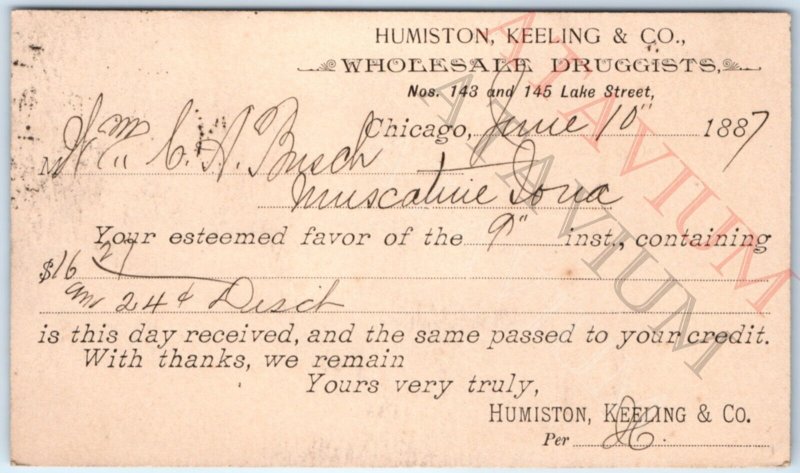 HUMISTON, KEELING & CO.,
WHOLESALE DRUGGISTS,
Nos. 143 and 145 Lake Street,
Chicago, June 10" 1887
C. A. Busch
Muscatine Iowa
Your esteemed favor of the 9" inst., containing
$16 27
24¢
is this day received, and the same passed to your credit.
With thanks, we remain
Yours very truly,
HUMISTON, KEELING & CO.
Per
ATAVIUM
ATAVIUM